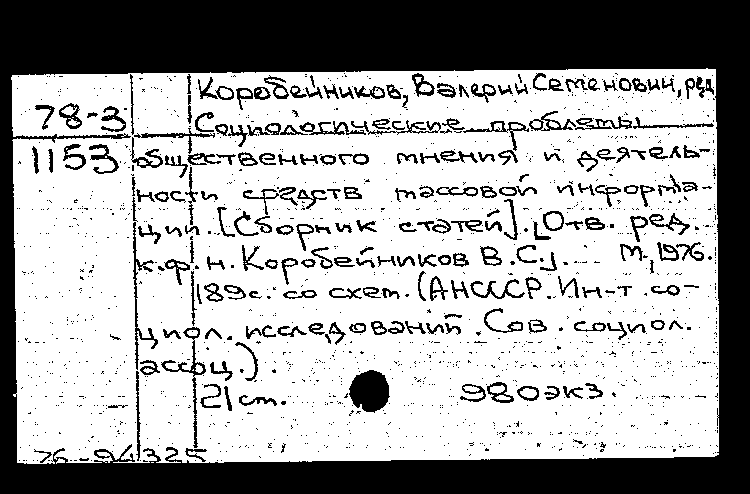 Коробейников, Валерий Семенович, ред.
78-3
Социологические проблемы
1153 общественного мнения и деятель-
ности средств массовой информа-
ции. [Сборник статей]. [Отв. ред.
к.ф.н. Коробейников В.С.]. М., 1976.
189с. со схем. (АН СССР. Ин-т со-
циол. исследований. Сов. социол.
ассоц.).
21 см. 980экз.
76-94325